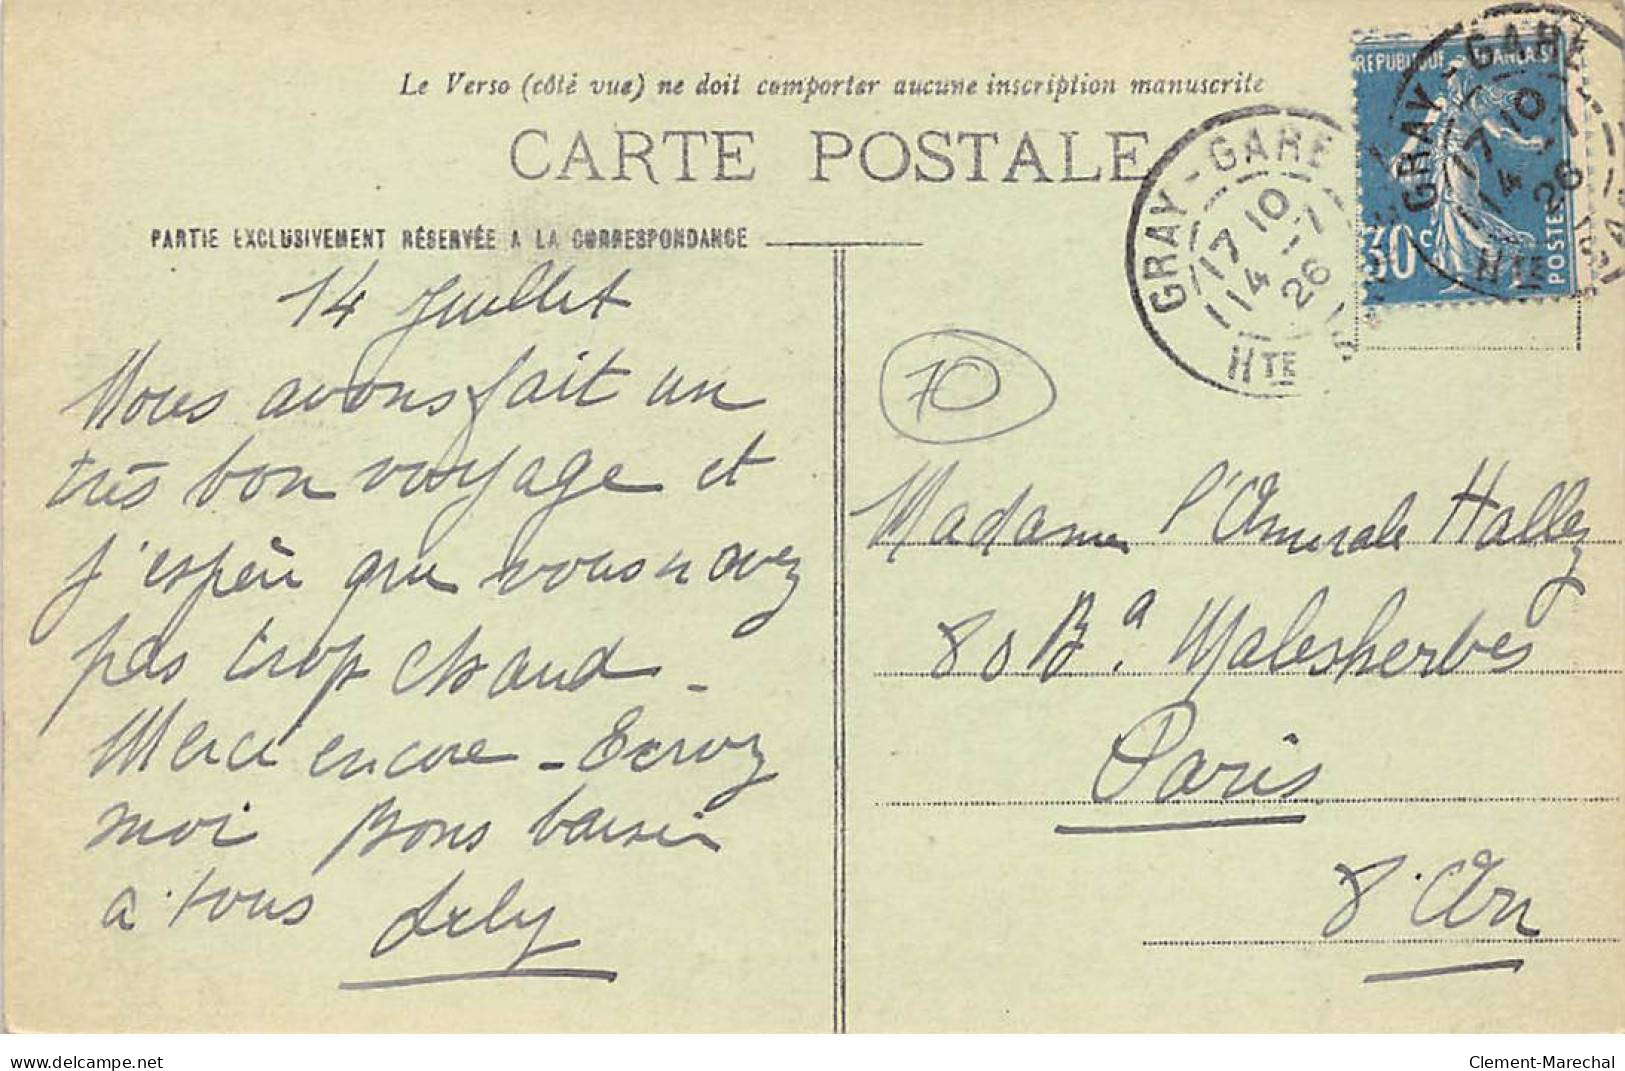 Le Verso (côté vue) ne doit comporter aucune inscription manuscrite
CARTE POSTALE
PARTIE EXCLUSIVEMENT RÉSERVÉE A LA CORRESPONDANCE
RÉPUBLIQUE FRANÇAISE
30c
POSTES
GRAY-GARE
17 10
14 -7
26
HTE
GRAY-GARE
17 10
14 -7
26
HTE
70
14 Juillet
Nous avons fait un
très bon voyage et
j'espère que vous n'avez
pas trop chaud -
Merci encore - Ecrivez
moi Bons baisers
a tous
Madame l'Amirale Hallez
80 Bd. Malesherbes
Paris
8.Arr
www.delcampe.net
Clement-Marechal